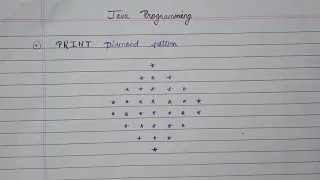 Java Programming
① PRINT Diamond pattern
*
* * *
* * * * *
* * * * * * *
* * * * * * *
* * * * *
* * *
*